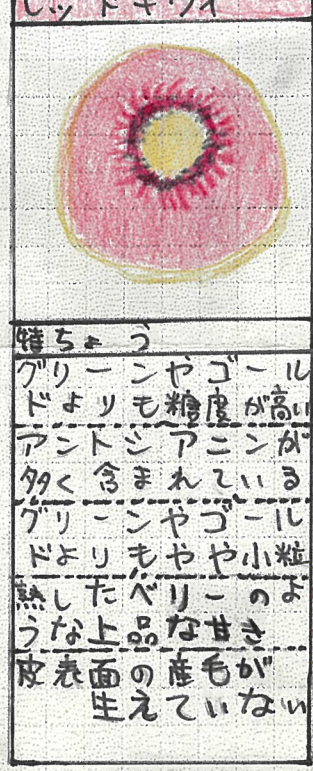 レッドキウイ
特ちょう
グリーンやゴール
ドよりも糖度が高い
アントシアニンが
多く含まれている
グリーンやゴール
ドよりもやや小粒
熟したベリーのよ
うな上品な甘さ
皮表面の産毛が
生えていない